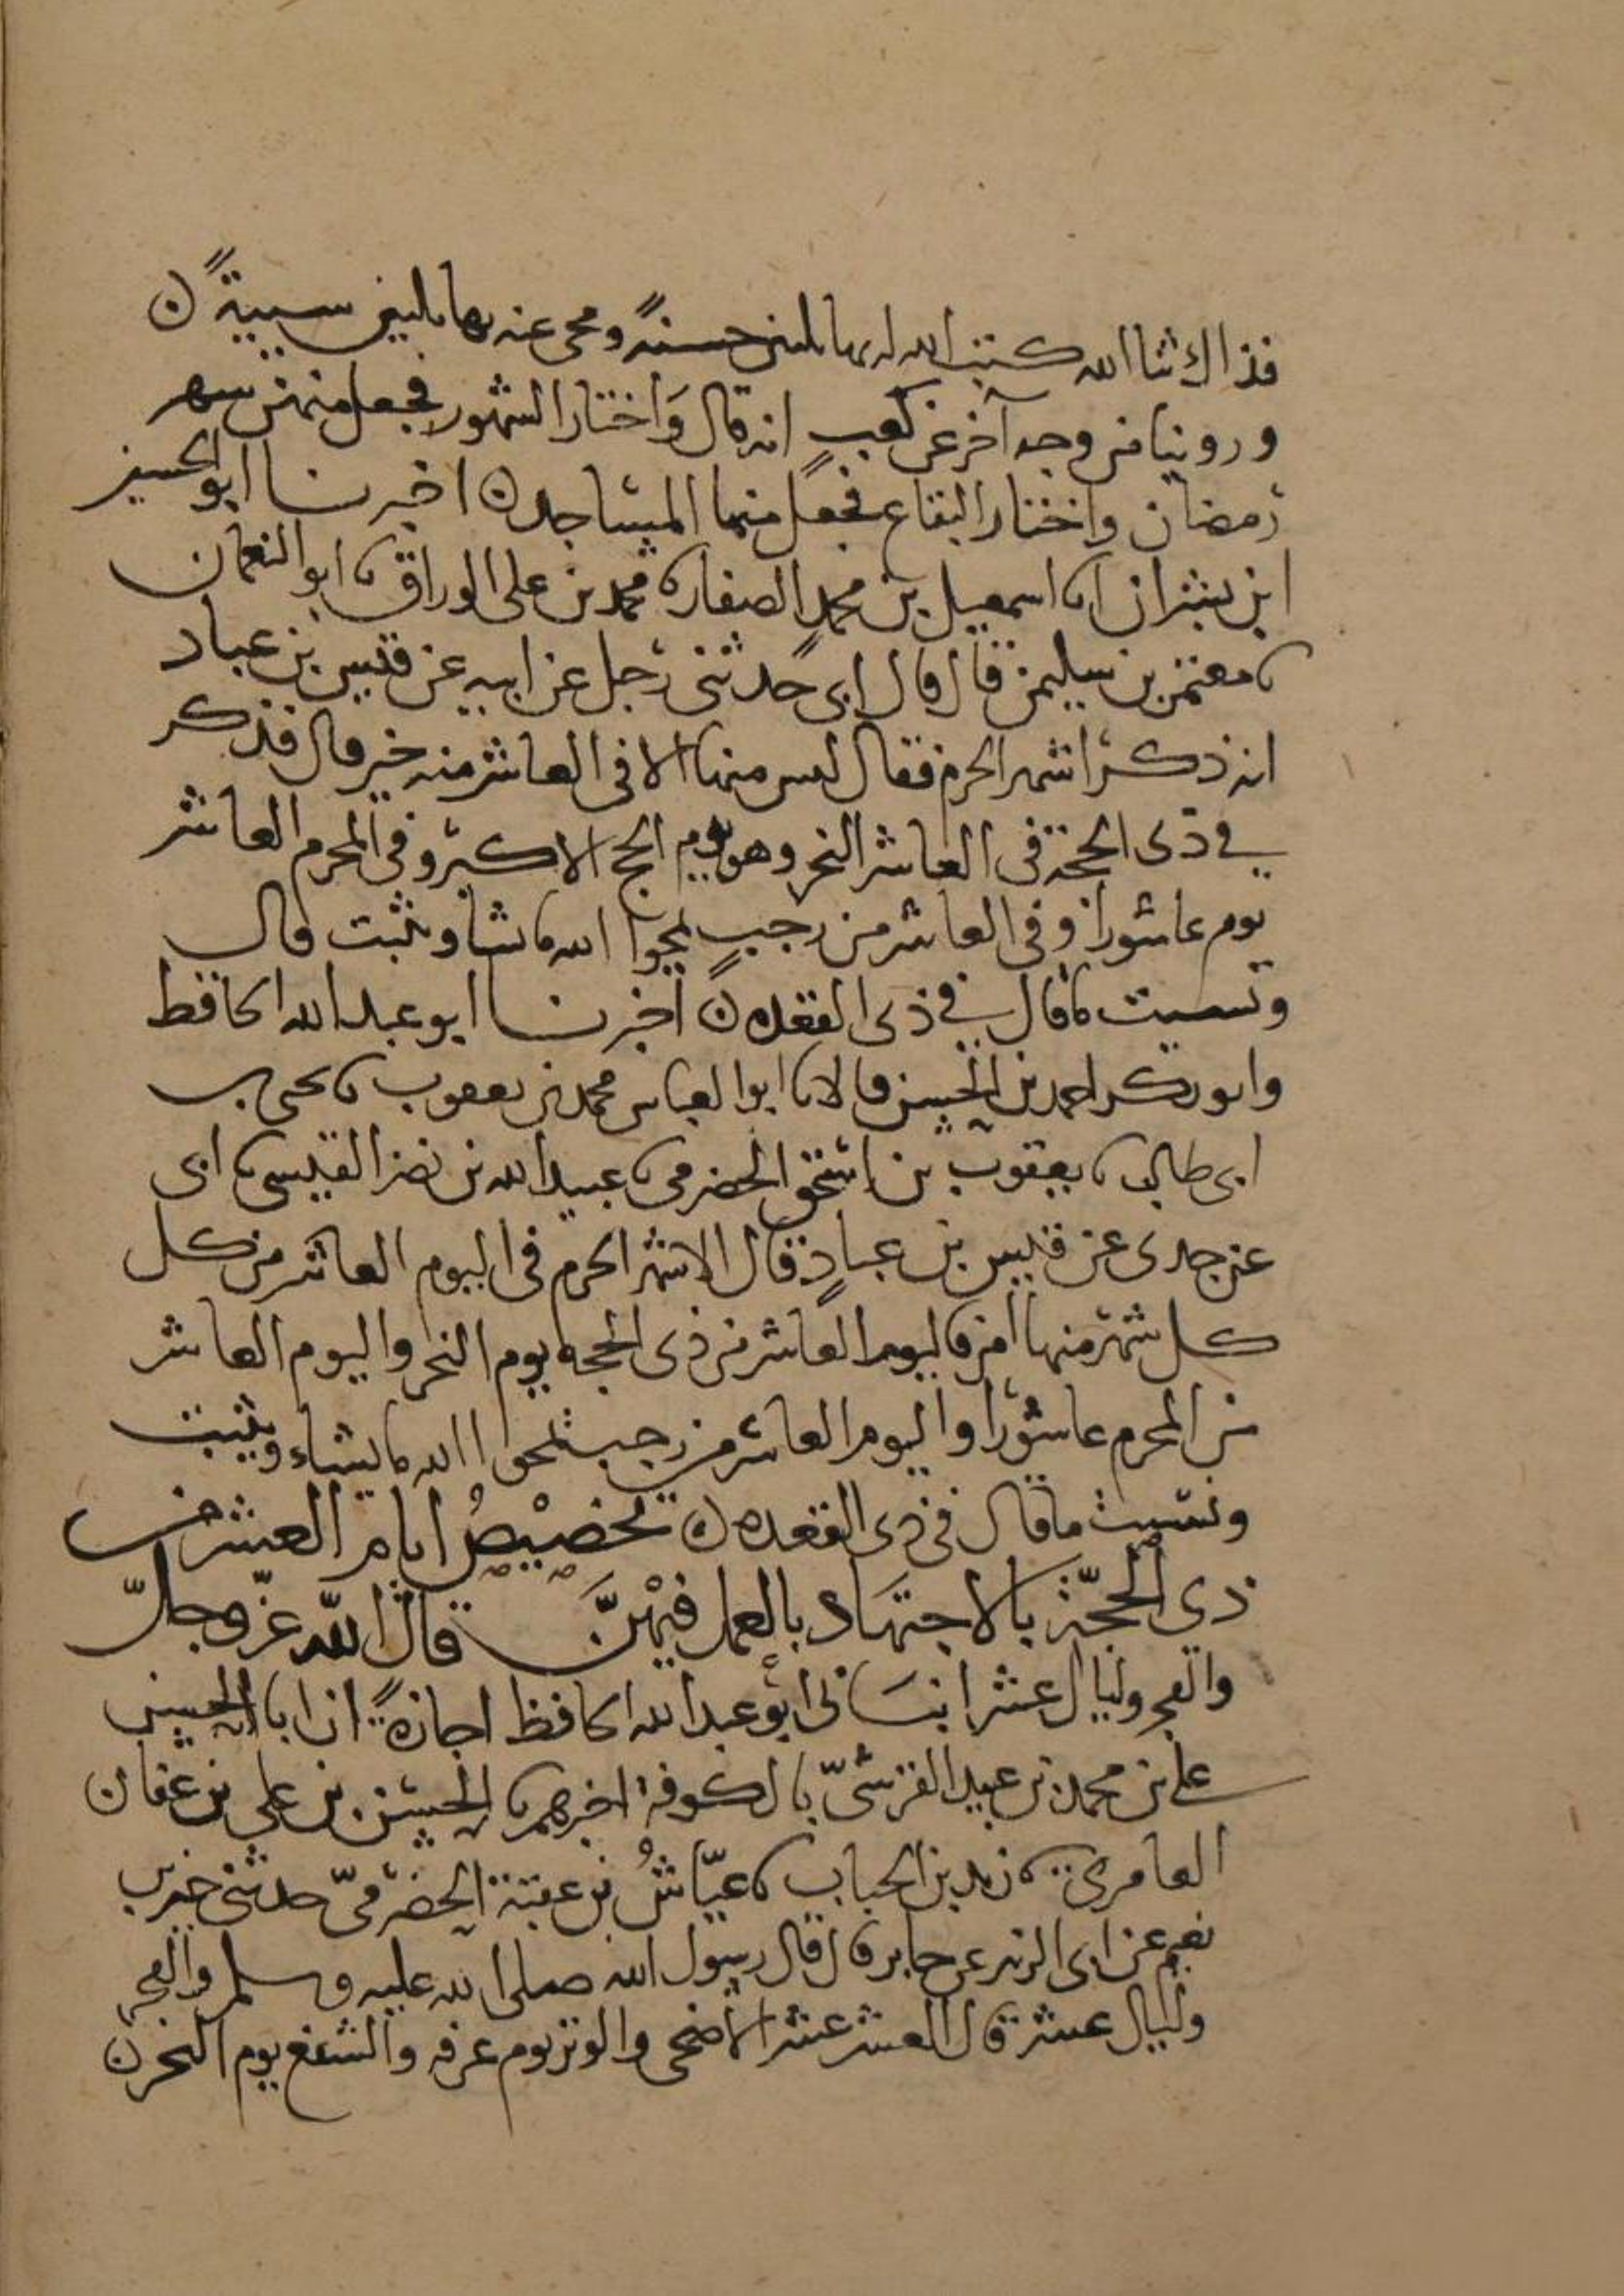 فذاك ثنا الله كتب الله له بها ثلثين حسنة ومحى عنه بها ثلثين سيية ن
وروينا من وجه آخر عن كعب انه قال واختار الشهور فجعل منهن شهر
رمضان واختار البقاع فجعل منها المساجد ن اخبرنا ابو الحسين
ابن بشران انا اسمعيل بن محمد الصفار نا محمد بن علي الوراق نا ابو النعمان
نا معتمر بن سليمن قال قال ابي حدثني رجل عن ابيه عن قيس بن عباد
انه ذكر اشهر الحرم فقال ليس منها الا في العاشر منه خير قال فذكر
في ذي الحجة في العاشر النحر وهو يوم الحج الاكبر وفي المحرم العاشر
يوم عاشورا وفي العاشر من رجب يمحوا الله ما شا ويثبت قال
ونسيت ما قال في ذي القعده ن اخبرنا ابو عبد الله الحافظ
وابو بكر احمد بن الحسن قالا نا ابو العباس محمد بن يعقوب نا يحيى بن
ابي طالب نا يعقوب بن اسحق الحضرمي نا عبيد الله بن نضر القيسي نا ابي
عن جدي عن قيس بن عباد قال الاشهر الحرم في اليوم العاشر من كل
كل شهر منها امر فاليوم العاشر من ذي الحجه يوم النحر واليوم العاشر
من المحرم عاشورا واليوم العاشر من رجب يمحوا الله ما يشاء ويثبت
ونسيت ما قال في ذي القعده ن تخصيص ايام العشر من
ذي الحجة بالاجتهاد بالعمل فيهن قال الله عز وجل
والفجر وليال عشر انباني ابو عبد الله الحافظ اجازة ان ابا الحسين
علي بن محمد بن عبيد القرشي بالكوفة اخبرهم نا الحسن بن علي بن عفان
العامري نا زيد بن الحباب نا عياش بن عقبة الحضرمي حدثني خير بن
نعيم عن ابي الزبير عن جابر قال قال رسول الله صلى الله عليه وسلم والفجر
وليال عشر قال العشر عشر الاضحى والوتر يوم عرفه والشفع يوم النحر ن